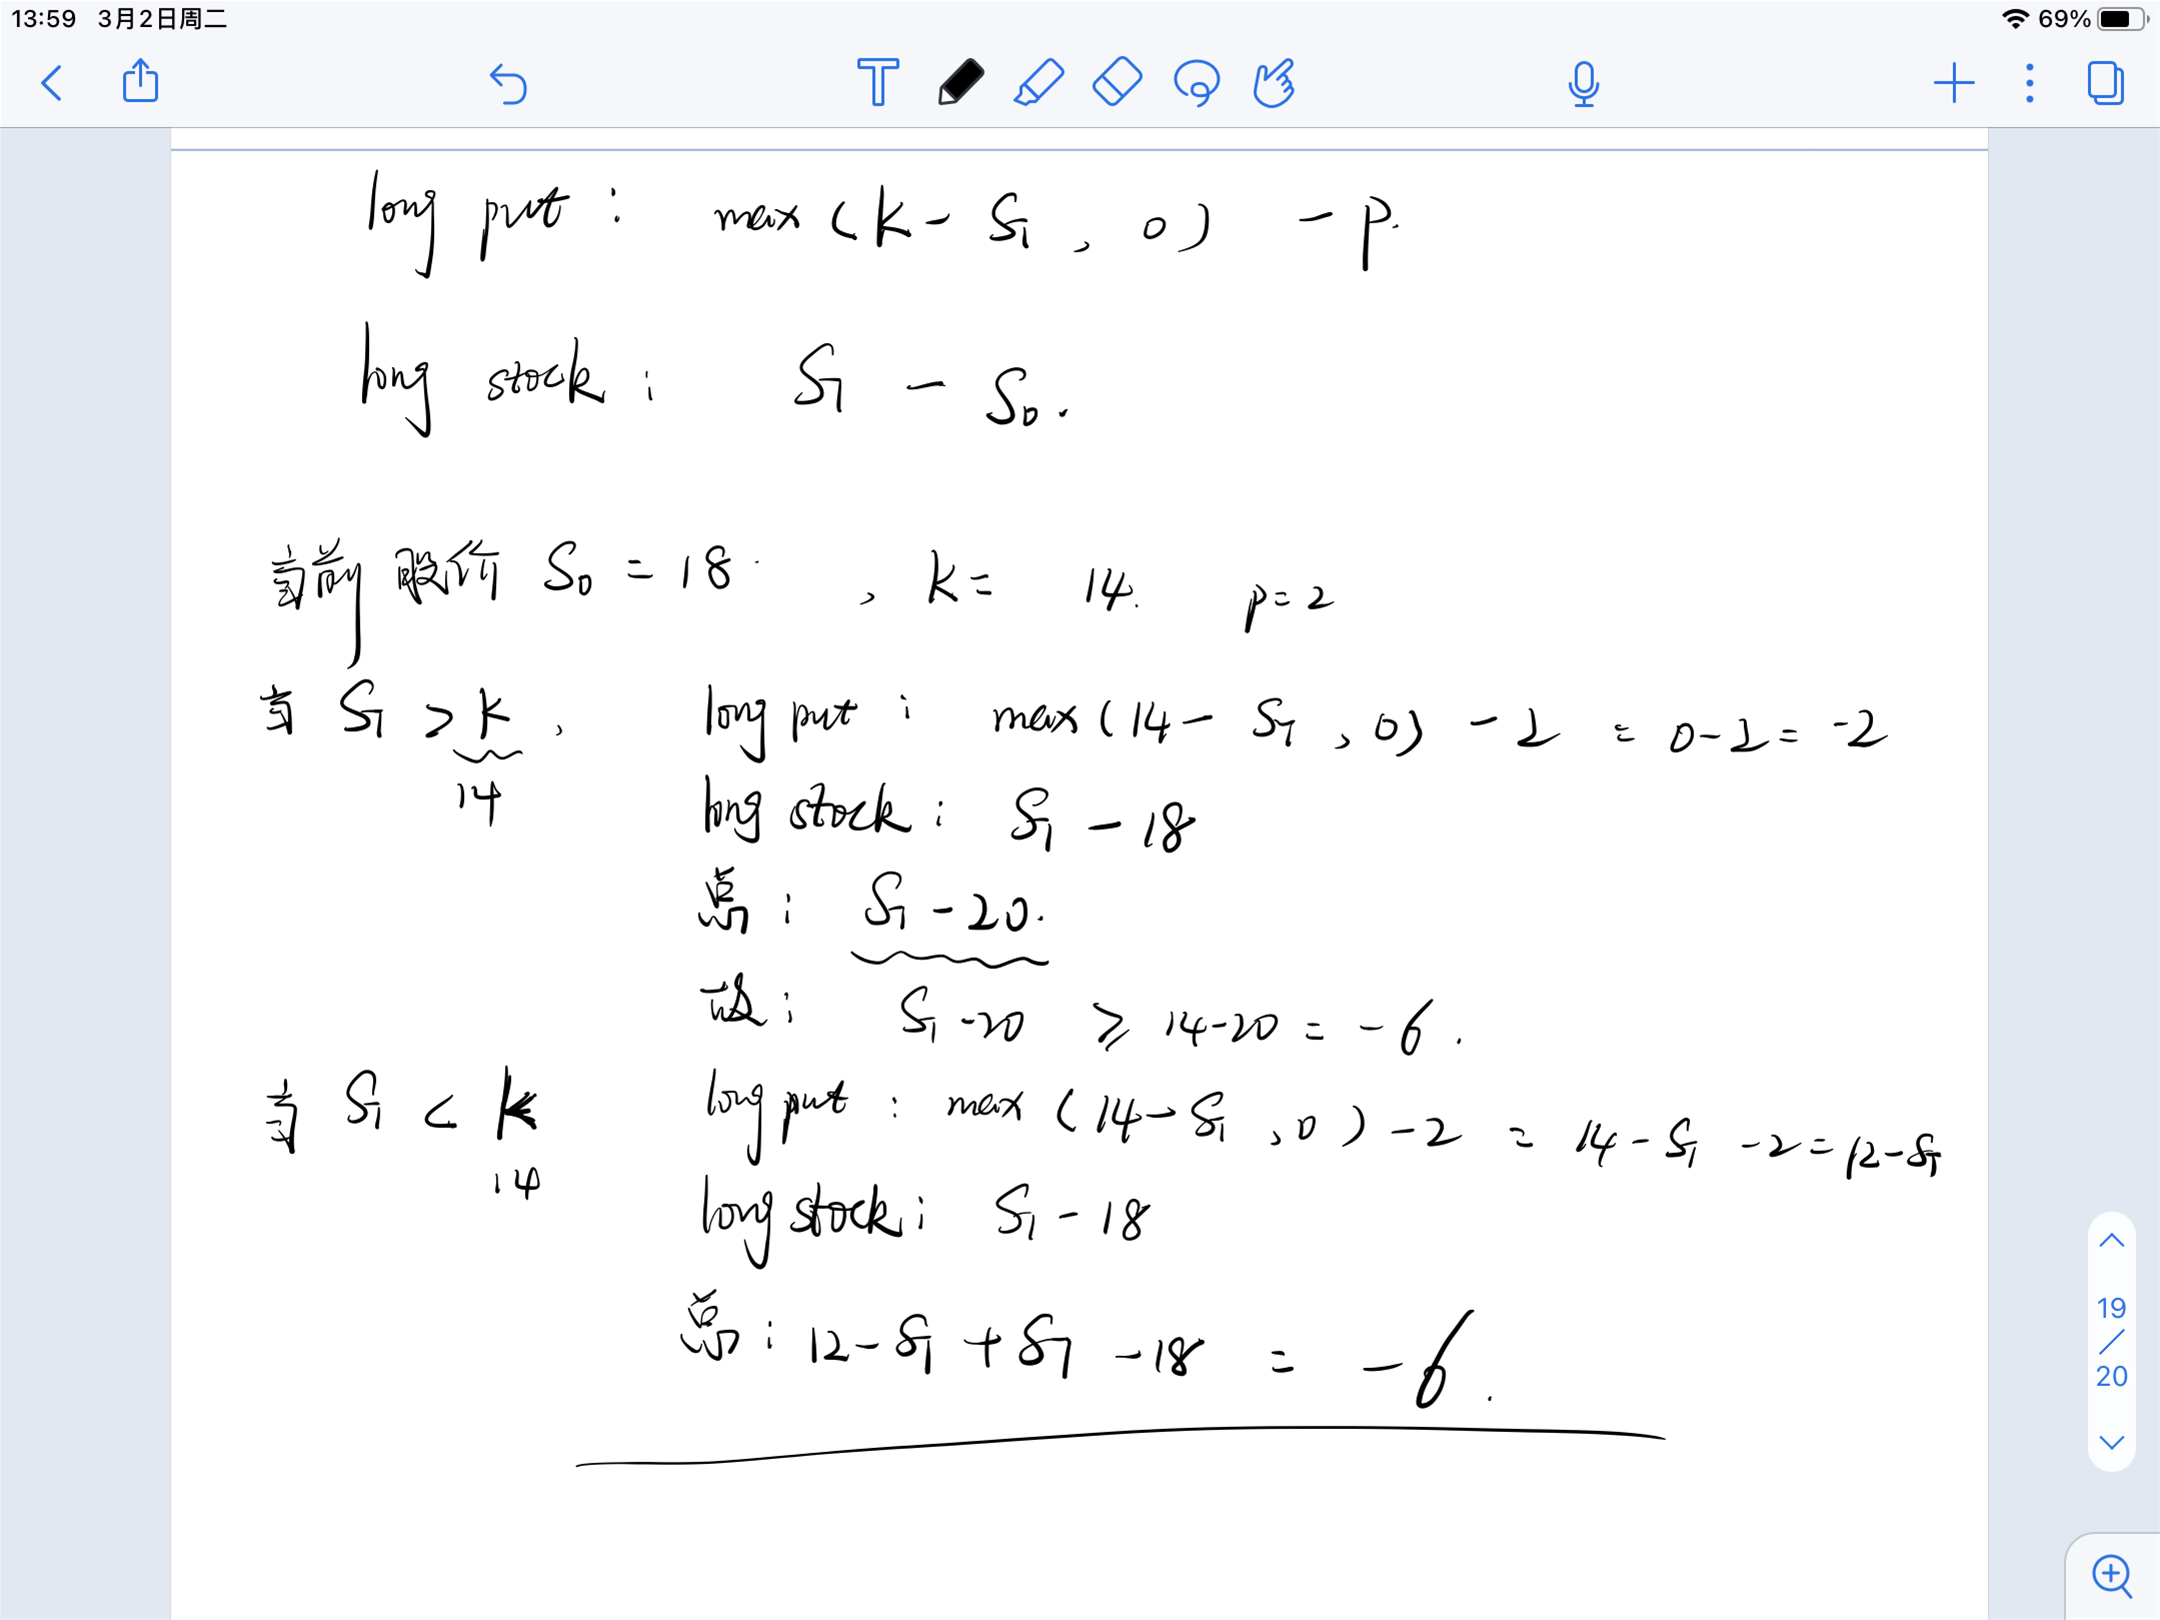 13:59 3月2日周二 69%
long put : max (K - S_T , 0) - P.
long stock : S_T - S_0.
当前股价 S_0 = 18 , K = 14. P = 2
当 S_T > K , long put : max (14 - S_T , 0) - 2 = 0 - 2 = -2
14
long stock : S_T - 18
总 : S_T - 20.
S_T - 20 ≥ 14 - 20 = -6 .
当 S_T < K long put : max (14 - S_T , 0) - 2 = 14 - S_T - 2 = 12 - S_T
14
long stock : S_T - 18
总 : 12 - S_T + S_T - 18 = -6 .
19
/
20